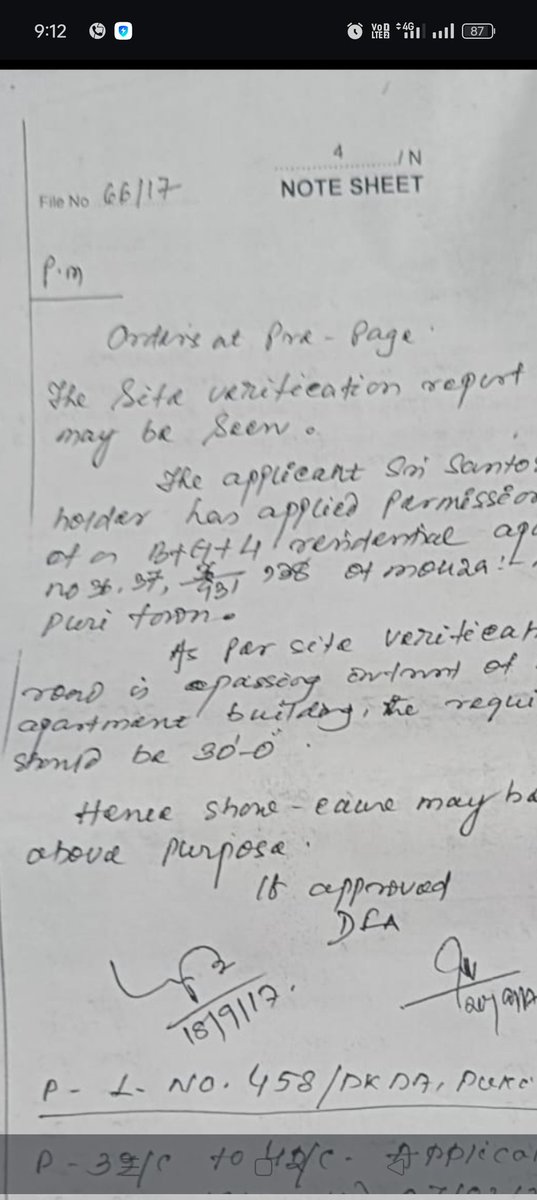 9:12
VoD LTE2 4G 87
4 /N
NOTE SHEET
File No 66/17
P.m
Orders at Pre-Page.
The Site verification report
may be seen.
The applicant Sri Santos
holder has applied Permission
of a B+G+4 residential apa
no 36, 37, 931 938 of mouza:-
Puri town.
As per site verificat
road is passing outmt of
apartment building, the requi
should be 30'-0"
Hence show-cause may be
above purpose.
If approved
DFA
18/9/17.
P-1- NO. 458/DKDA, PURI
P-32/C to 42/C- Applica